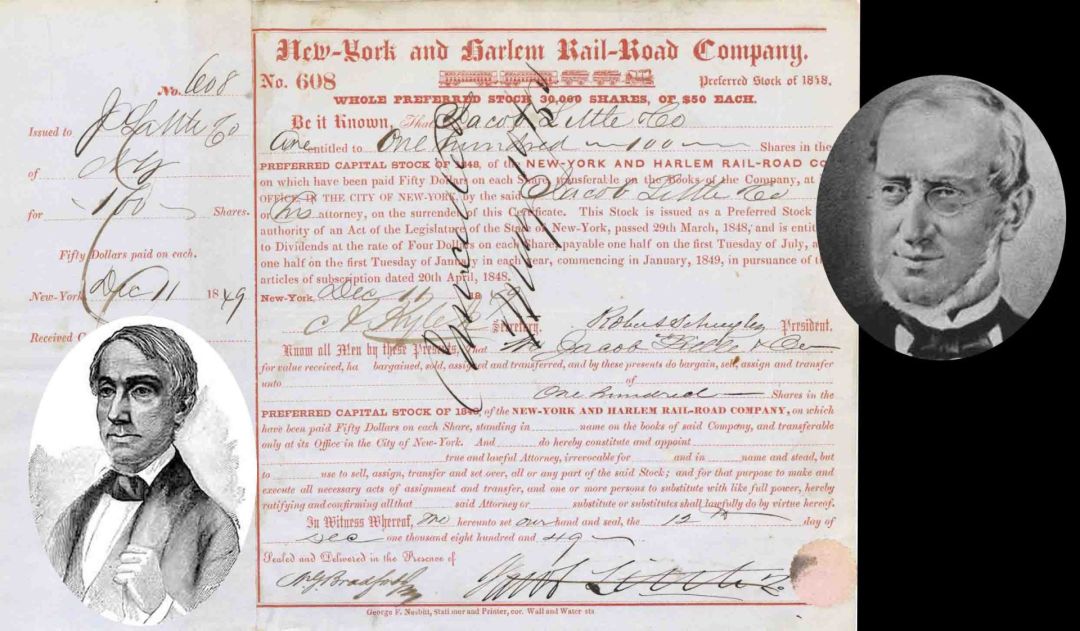 No. 608
Issued to J Little & Co
of N Y
for 100 Shares.
Fifty Dollars paid on each.
New-York Dec 11 1849
Received C
New-York and Harlem Rail-Road Company.
No. 608 Preferred Stock of 1848.
WHOLE PREFERRED STOCK 30,000 SHARES, OF $50 EACH.
Be it Known, That Jacob Little & Co
are entitled to One hundred —100— Shares in the
PREFERRED CAPITAL STOCK OF 1848, of the NEW-YORK AND HARLEM RAIL-ROAD CO
on which have been paid Fifty Dollars on each Share, transferable on the Books of the Company, at
OFFICE IN THE CITY OF NEW-YORK, by the said Jacob Little & Co
or his attorney, on the surrender of this Certificate. This Stock is issued as a Preferred Stock
authority of an Act of the Legislature of the State of New-York, passed 29th March, 1848, and is entit
to Dividends at the rate of Four Dollars on each Share, payable one half on the first Tuesday of July, a
one half on the first Tuesday of January in each year, commencing in January, 1849, in pursuance of t
articles of subscription dated 20th April, 1848.
New-York, Dec 11 1849
Secretary. Robert Schuyler President.
Know all Men by these Presents, that We Jacob Little & Co
for value received, ha bargained, sold, assigned and transferred, and by these presents do bargain, sell, assign and transfer
unto of
One hundred Shares in the
PREFERRED CAPITAL STOCK OF 1848, of the NEW-YORK AND HARLEM RAIL-ROAD COMPANY, on which
have been paid Fifty Dollars on each Share, standing in name on the books of said Company, and transferable
only at its Office in the City of New-York. And do hereby constitute and appoint
true and lawful Attorney, irrevocable for and in name and stead, but
to use to sell, assign, transfer and set over, all or any part of the said Stock; and for that purpose to make and
execute all necessary acts of assignment and transfer, and one or more persons to substitute with like full power, hereby
ratifying and confirming all that said Attorney or substitute or substitutes shall lawfully do by virtue hereof.
In Witness Whereof, We hereunto set our hand and seal, the 12th day of
Dec one thousand eight hundred and 49
Sealed and Delivered in the Presence of
Jacob Little & Co
George F. Nesbitt, Stationer and Printer, cor. Wall and Water sts